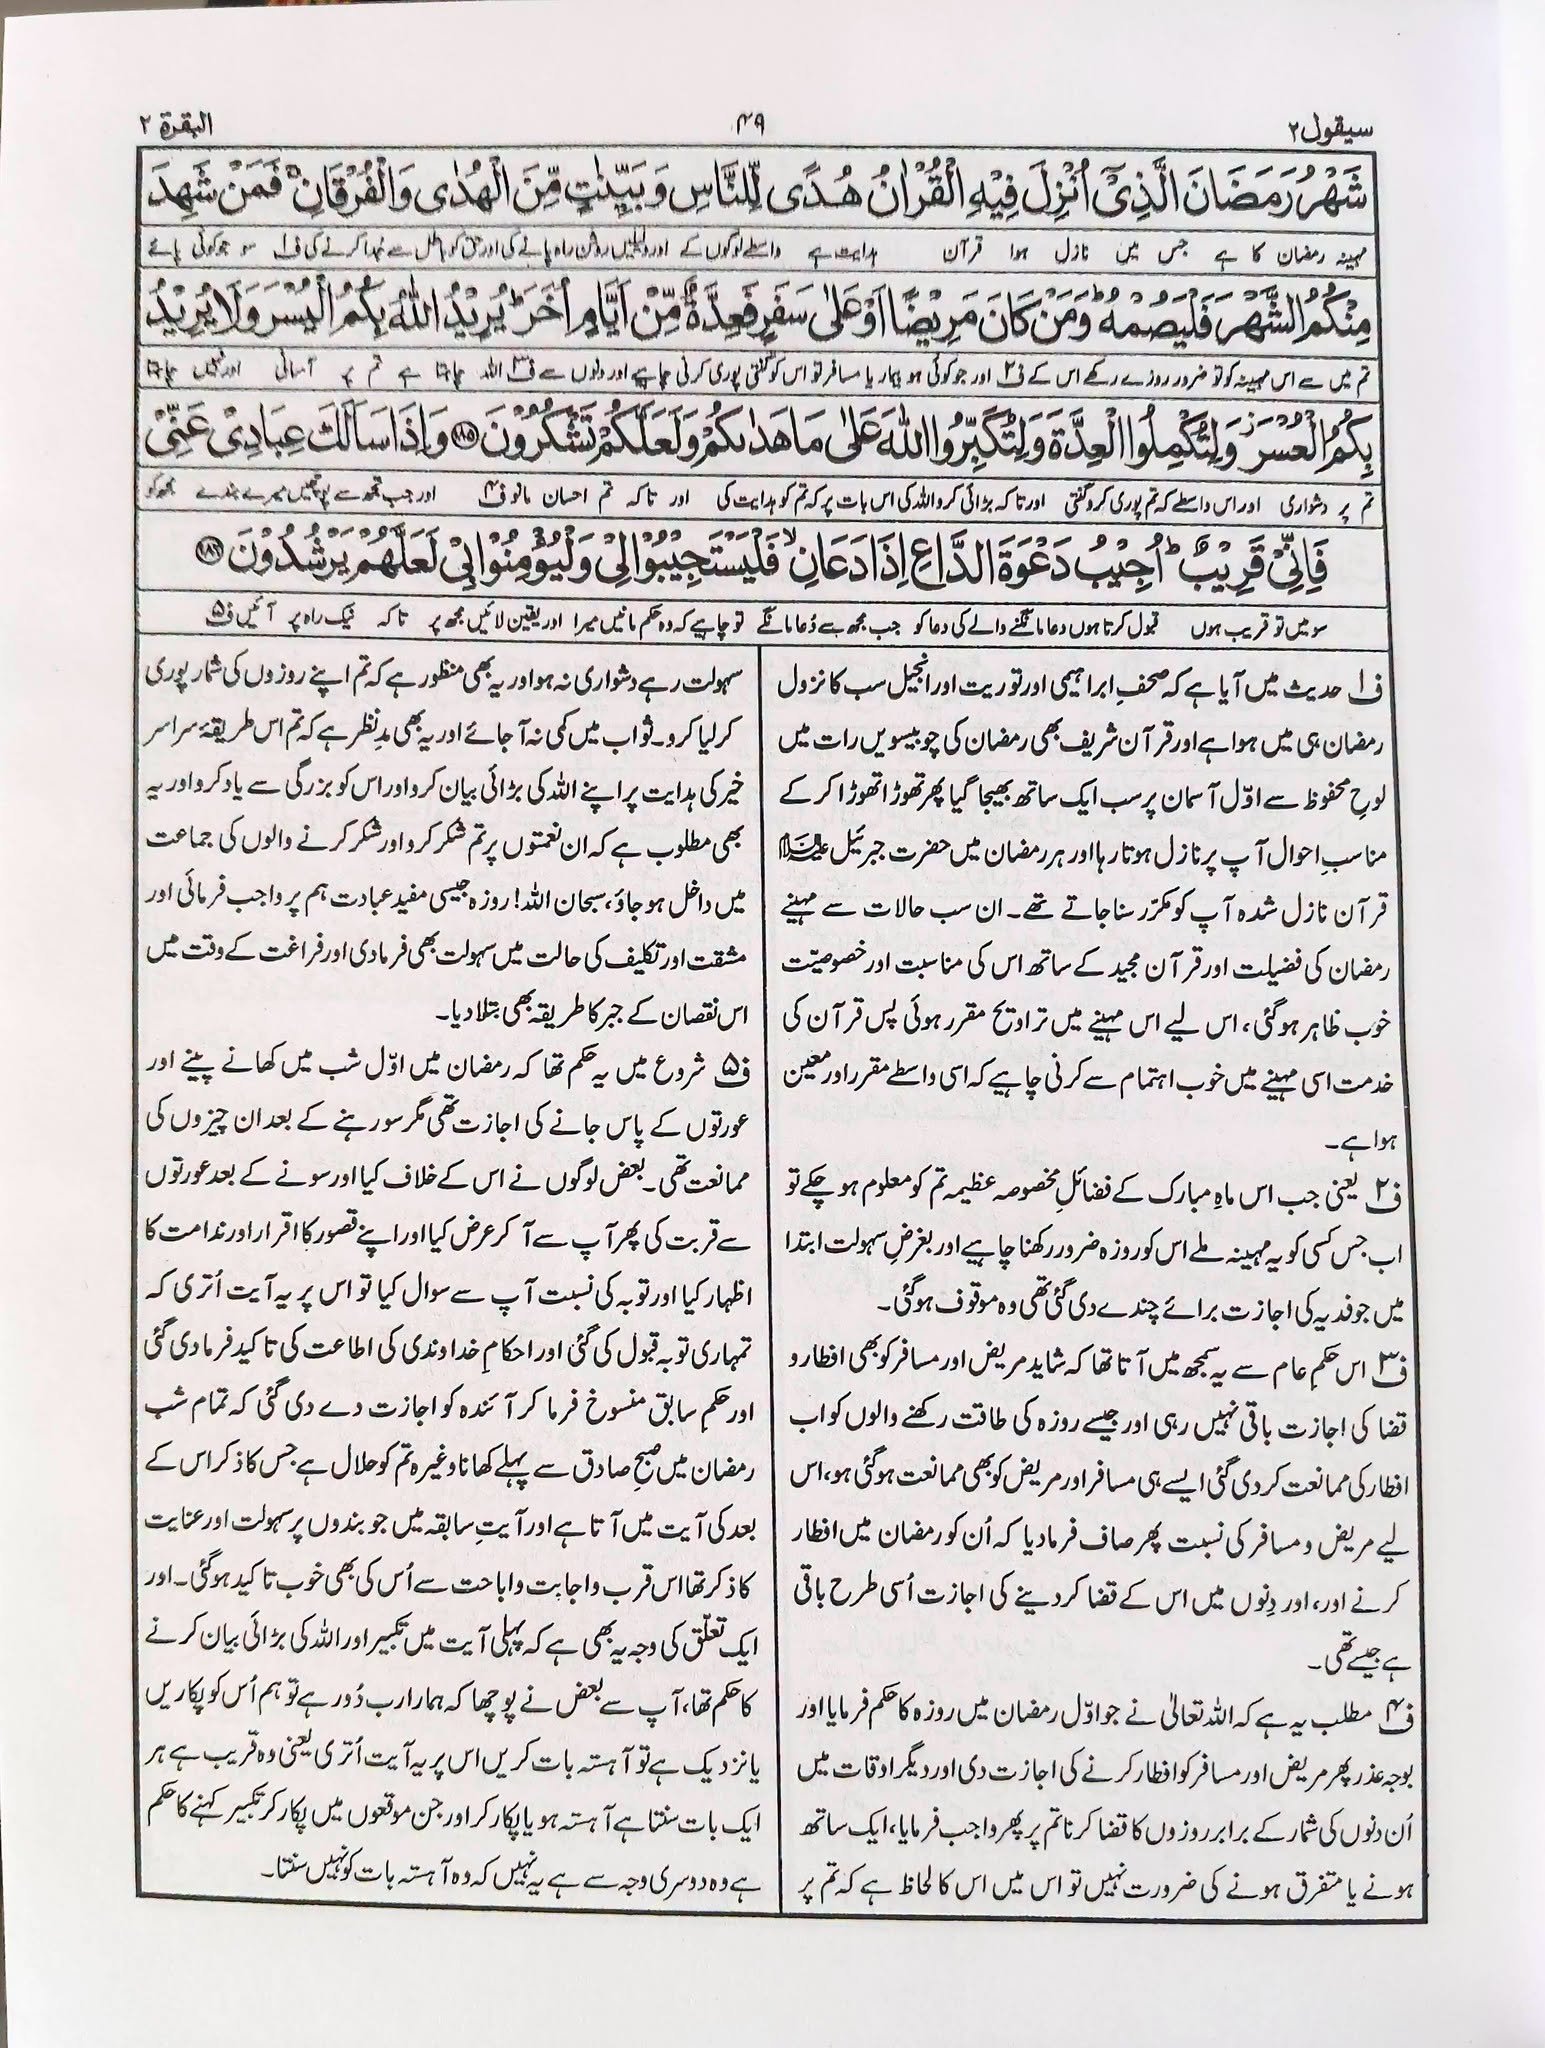 سیقول ۲
۴۹
البقرة ۲
شَهْرُ رَمَضَانَ الَّذِیْۤ اُنْزِلَ فِیْهِ الْقُرْاٰنُ هُدًی لِّلنَّاسِ وَ بَیِّنٰتٍ مِّنَ الْهُدٰی وَالْفُرْقَانِ ۚ فَمَنْ شَهِدَ
مہینہ رمضان کا ہے جس میں نازل ہوا قرآن ہدایت ہے واسطے لوگوں کے اور دلیلیں روشن راہ پانے کی اور حق کو باطل سے جدا کرنے کی ف۱ سو جو کوئی پائے
مِنْكُمُ الشَّهْرَ فَلْیَصُمْهُ ؕ وَمَنْ كَانَ مَرِیْضًا اَوْ عَلٰی سَفَرٍ فَعِدَّةٌ مِّنْ اَیَّامٍ اُخَرَ ؕ یُرِیْدُ اللّٰهُ بِكُمُ الْیُسْرَ وَلَا یُرِیْدُ
تم میں سے اس مہینہ کو تو ضرور روزے رکھے اس کے ف۲ اور جو کوئی ہو بیمار یا مسافر تو اس کو گنتی پوری کرنی چاہیے اور دنوں سے ف۳ اللہ چاہتا ہے تم پر آسانی اور نہیں چاہتا
بِكُمُ الْعُسْرَ ۫ وَلِتُكْمِلُوا الْعِدَّةَ وَلِتُكَبِّرُوا اللّٰهَ عَلٰی مَا هَدٰىكُمْ وَلَعَلَّكُمْ تَشْكُرُوْنَ ﴿۱۸۵﴾ وَاِذَا سَاَلَكَ عِبَادِیْ عَنِّیْ
تم پر دشواری اور اس واسطے کہ تم پوری کرو گنتی اور تاکہ بڑائی کرو اللہ کی اس بات پر کہ تم کو ہدایت کی اور تاکہ تم احسان مانو ف۴ اور جب تجھ سے پوچھیں میرے بندے مجھ کو
فَاِنِّیْ قَرِیْبٌ ؕ اُجِیْبُ دَعْوَةَ الدَّاعِ اِذَا دَعَانِ ۙ فَلْیَسْتَجِیْبُوْا لِیْ وَلْیُؤْمِنُوْا بِیْ لَعَلَّهُمْ یَرْشُدُوْنَ ﴿۱۸۶﴾
سو میں تو قریب ہوں قبول کرتا ہوں دعا مانگنے والے کی دعا کو جب مجھ سے دُعا مانگے تو چاہیے کہ وہ حکم مانیں میرا اور یقین لائیں مجھ پر تاکہ نیک راہ پر آئیں ف۵
ف۱ حدیث میں آیا ہے کہ صحفِ ابراہیمی اور توریت اور انجیل سب کا نزول
رمضان ہی میں ہوا ہے اور قرآن شریف بھی رمضان کی چوبیسویں رات میں
لوحِ محفوظ سے اوّل آسمان پر سب ایک ساتھ بھیجا گیا پھر تھوڑا تھوڑا کر کے
مناسبِ احوال آپ پر نازل ہوتا رہا اور ہر رمضان میں حضرت جبرئیل علیہ السلام
قرآن نازل شدہ آپ کو مکرّر سنا جاتے تھے۔ ان سب حالات سے مہینے
رمضان کی فضیلت اور قرآن مجید کے ساتھ اس کی مناسبت اور خصوصیّت
خوب ظاہر ہوگئی، اس لیے اس مہینے میں تراویح مقرر ہوئی پس قرآن کی
خدمت اسی مہینے میں خوب اہتمام سے کرنی چاہیے کہ اسی واسطے مقرر اور معین
ہوا ہے۔
ف۲ یعنی جب اس ماہِ مبارک کے فضائلِ مخصوصہ عظیمہ تم کو معلوم ہو چکے تو
اب جس کسی کو یہ مہینہ ملے اس کو روزہ ضرور رکھنا چاہیے اور بغرضِ سہولت ابتدا
میں جو فدیہ کی اجازت برائے چندے دی گئی تھی وہ موقوف ہوگئی۔
ف۳ اس حکمِ عام سے یہ سمجھ میں آتا تھا کہ شاید مریض اور مسافر کو بھی افطار و
قضا کی اجازت باقی نہیں رہی اور جیسے روزہ کی طاقت رکھنے والوں کو اب
افطار کی ممانعت کردی گئی ایسے ہی مسافر اور مریض کو بھی ممانعت ہوگئی ہو، اس
لیے مریض و مسافر کی نسبت پھر صاف فرما دیا کہ اُن کو رمضان میں افطار
کرنے اور، اور دِنوں میں اس کے قضا کردینے کی اجازت اُسی طرح باقی
ہے جیسے تھی۔
ف۴ مطلب یہ ہے کہ اللہ تعالیٰ نے جو اوّل رمضان میں روزہ کا حکم فرمایا اور
بوجہ عذر پھر مریض اور مسافر کو افطار کرنے کی اجازت دی اور دیگر اوقات میں
اُن دنوں کی شمار کے برابر روزوں کا قضا کرنا تم پر پھر واجب فرمایا، ایک ساتھ
ہونے یا متفرق ہونے کی ضرورت نہیں تو اس میں اس کا لحاظ ہے کہ تم پر
سہولت رہے دشواری نہ ہو اور یہ بھی منظور ہے کہ تم اپنے روزوں کی شمار پوری
کر لیا کرو۔ ثواب میں کمی نہ آجائے اور یہ بھی مدِ نظر ہے کہ تم اس طریقۂ سراسر
خیر کی ہدایت پر اپنے اللہ کی بڑائی بیان کرو اور اس کو بزرگی سے یاد کرو اور یہ
بھی مطلوب ہے کہ ان نعمتوں پر تم شکر کرو اور شکر کرنے والوں کی جماعت
میں داخل ہو جاؤ، سبحان اللہ! روزہ جیسی مفید عبادت ہم پر واجب فرمائی اور
مشقت اور تکلیف کی حالت میں سہولت بھی فرما دی اور فراغت کے وقت میں
اس نقصان کے جبر کا طریقہ بھی بتلا دیا۔
ف۵ شروع میں یہ حکم تھا کہ رمضان میں اوّل شب میں کھانے پینے اور
عورتوں کے پاس جانے کی اجازت تھی مگر سو رہنے کے بعد ان چیزوں کی
ممانعت تھی۔ بعض لوگوں نے اس کے خلاف کیا اور سونے کے بعد عورتوں
سے قربت کی پھر آپ سے آکر عرض کیا اور اپنے قصور کا اقرار اور ندامت کا
اظہار کیا اور توبہ کی نسبت آپ سے سوال کیا تو اس پر یہ آیت اُتری کہ
تمہاری توبہ قبول کی گئی اور احکامِ خداوندی کی اطاعت کی تاکید فرما دی گئی
اور حکمِ سابق منسوخ فرما کر آئندہ کو اجازت دے دی گئی کہ تمام شب
رمضان میں صبحِ صادق سے پہلے کھانا وغیرہ تم کو حلال ہے جس کا ذکر اس کے
بعد کی آیت میں آتا ہے اور آیتِ سابقہ میں جو بندوں پر سہولت اور عنایت
کا ذکر تھا اس قرب و اجابت و اباحت سے اُس کی بھی خوب تاکید ہوگئی۔ اور
ایک تعلّق کی وجہ یہ بھی ہے کہ پہلی آیت میں تکبیر اور اللہ کی بڑائی بیان کرنے
کا حکم تھا، آپ سے بعض نے پوچھا کہ ہمارا رب دُور ہے تو ہم اُس کو پکاریں
یا نزدیک ہے تو آہستہ بات کریں اس پر یہ آیت اُتری یعنی وہ قریب ہے ہر
ایک بات سنتا ہے آہستہ ہو یا پکار کر اور جن موقعوں میں پکار کر تکبیر کہنے کا حکم
ہے وہ دوسری وجہ سے ہے یہ نہیں کہ وہ آہستہ بات کو نہیں سنتا۔